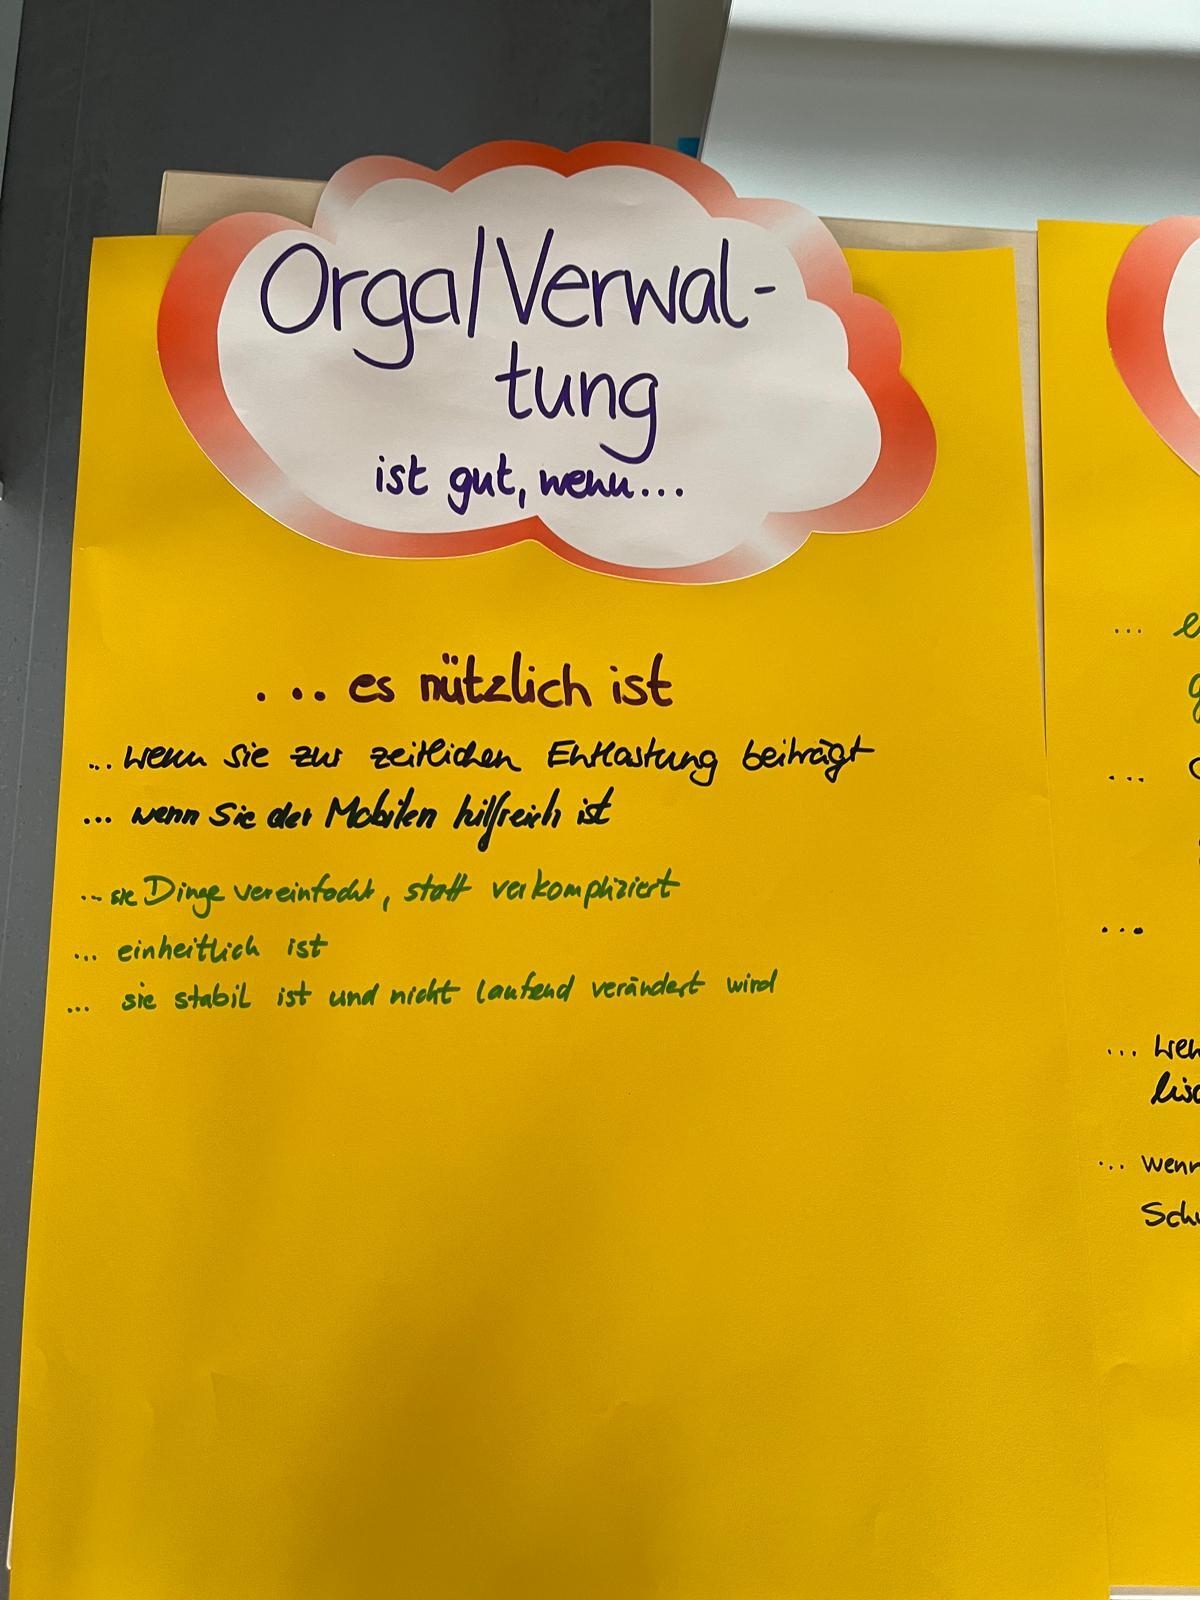 Orga/Verwal-
tung
ist gut, wenn...
... es nützlich ist
... wenn sie zur zeitlichen Entlastung beiträgt
... wenn Sie der Mobilen hilfreich ist
... sie Dinge vereinfacht, statt verkompliziert
... einheitlich ist
... sie stabil ist und nicht laufend verändert wird
...
...
...
...
... wenn